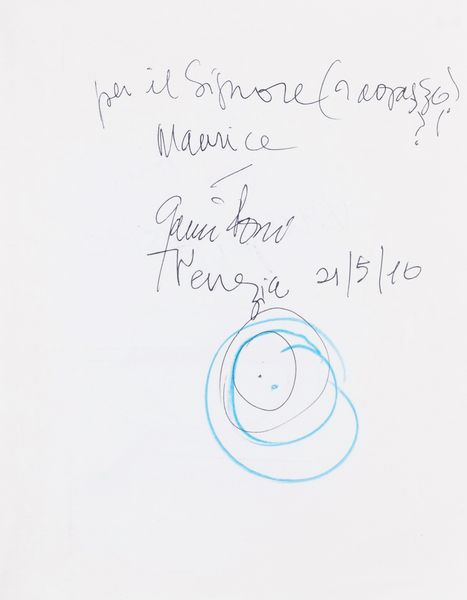 per il Signore (ragazzo)
?!
Maurice
Venezia 21/5/10